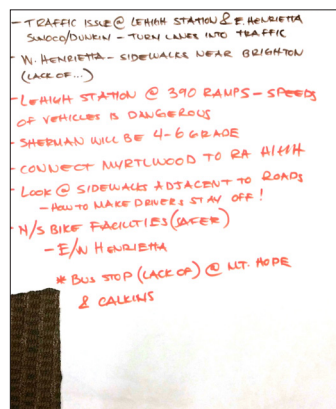 - TRAFFIC ISSUE @ LEHIGH STATION & E. HENRIETTA
SUNOCO/DUNKIN - TURN LANES INTO TRAFFIC
- W. HENRIETTA - SIDEWALKS NEAR BRIGHTON
(LACK OF...)
- LEHIGH STATION @ 390 RAMPS - SPEEDS
OF VEHICLES IS DANGEROUS
- SHERMAN WILL BE 4-6 GRADE
- CONNECT MYRTLWOOD TO RA HIGH
- LOOK @ SIDEWALKS ADJACENT TO ROADS
- HOW TO MAKE DRIVERS STAY OFF!
- N/S BIKE FACILITIES (SAFER)
- E/W HENRIETTA
* BUS STOP (LACK OF) @ MT. HOPE
& CALKINS